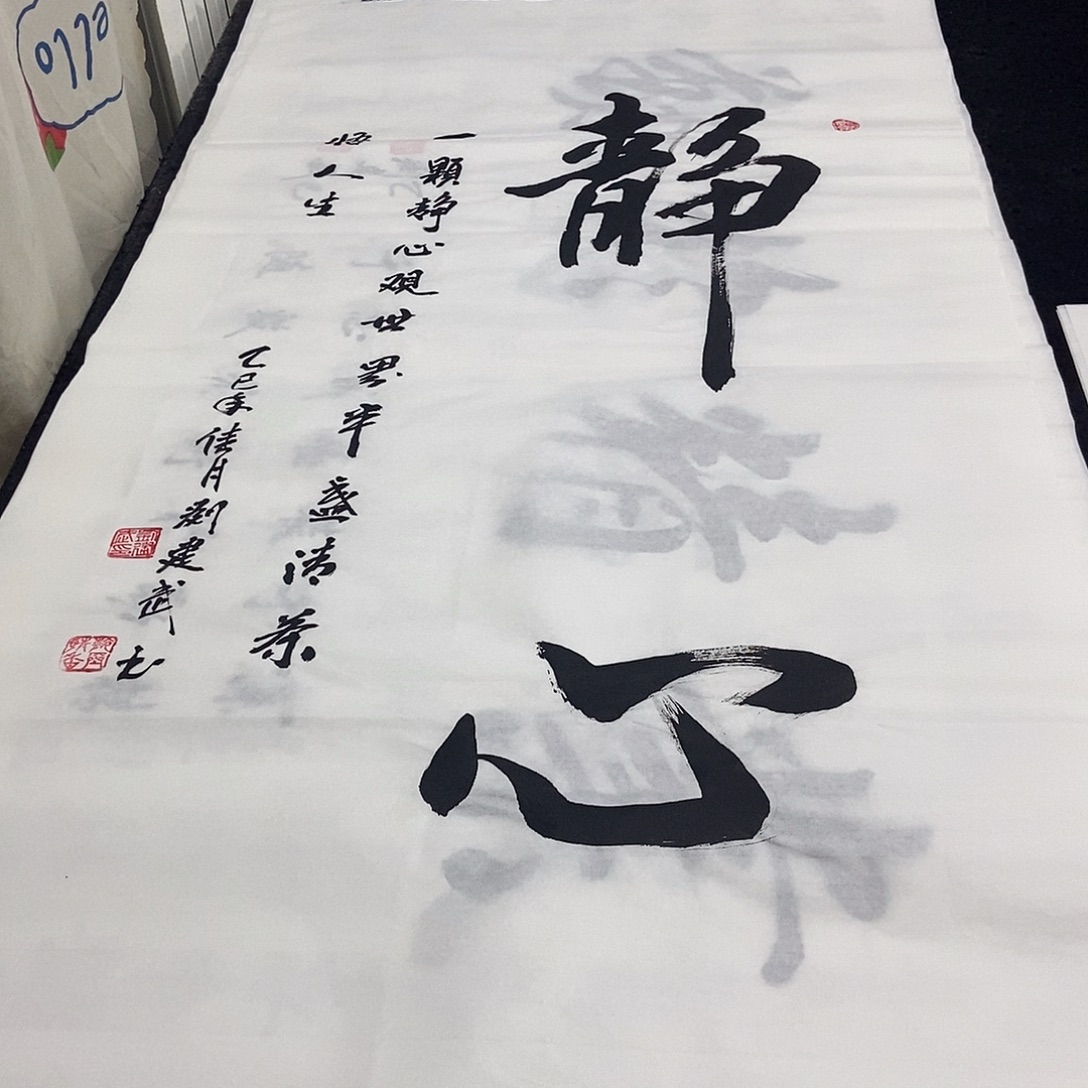 静心
一顆静心观世界半盏清茶
人生
乙巳年佳月劉建武书